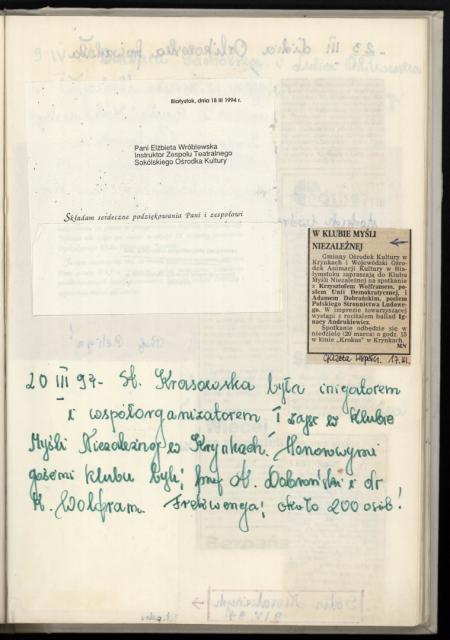 Białystok, dnia 18 III 1994 r.
Pani Elżbieta Wróblewska
Instruktor Zespołu Teatralnego
Sokólskiego Ośrodka Kultury
Składam serdeczne podziękowania Pani i zespołowi
W KLUBIE MYŚLI
NIEZALEŻNEJ
Gminny Ośrodek Kultury w
Krynkach i Wojewódzki Ośro-
dek Animacji Kultury w Bia-
łymstoku zapraszają do Klubu
Myśli Niezależnej na spotkanie
z Krzysztofem Wolframem, po-
słem Unii Demokratycznej, i
Adamem Dobrońskim, posłem
Polskiego Stronnictwa Ludowe-
go. W imprezie towarzyszącej
wystąpi z recitalem ballad Ig-
nacy Andrukiewicz.
Spotkanie odbędzie się w
niedzielę (20 marca) o godz. 15
w kinie „Krokus" w Krynkach.
MN
Gazeta Współcz. 17.III.
20 III 94 - St. Krasowska była inigatorem
i współorganizatorem I zaję w Klubie
Myśli Niezależnej w Krynkach. Honorowymi
gośćmi klubu byli; prof A. Dobroński i dr
K. Wolfram. Frekwencja; około 200 osób!